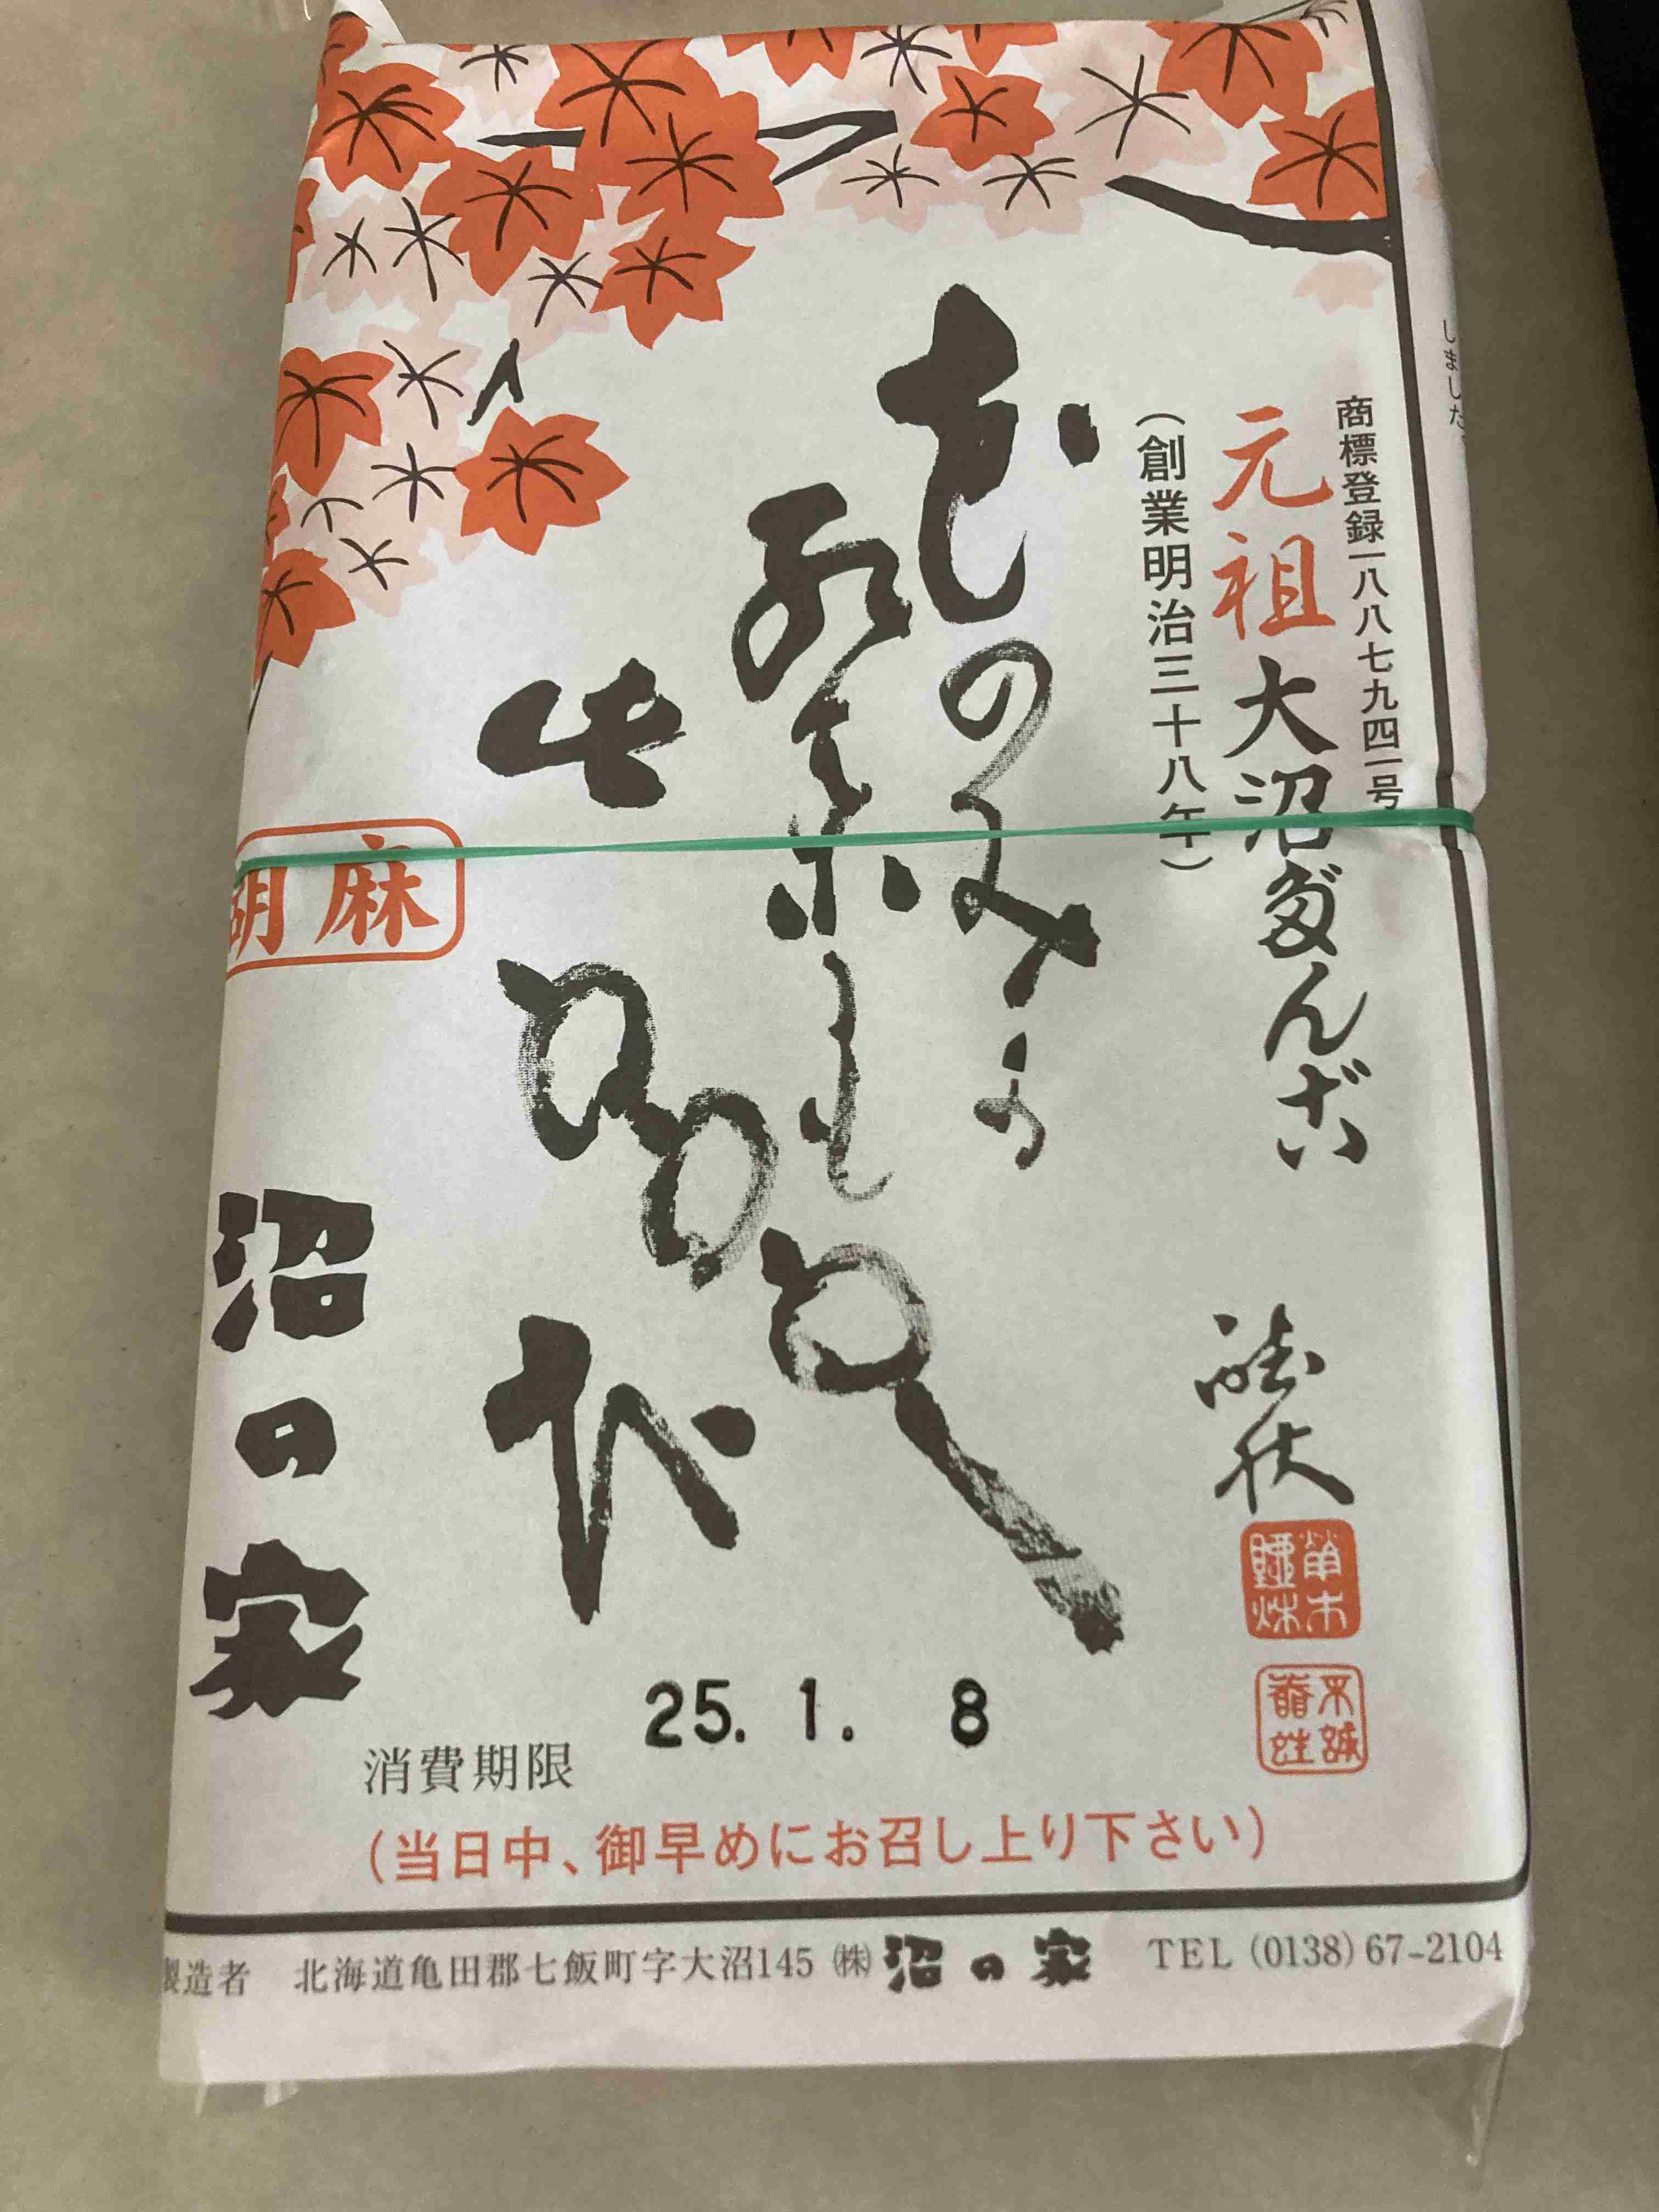 しました。
商標登録一八八七九四一号
元祖大沼だんご
（創業明治三十八年）
花のみか
胡麻
沼の家
25. 1. 8
消費期限
（当日中、御早めにお召し上り下さい）
製造者 北海道亀田郡七飯町字大沼145 ㈱沼の家 TEL (0138) 67-2104